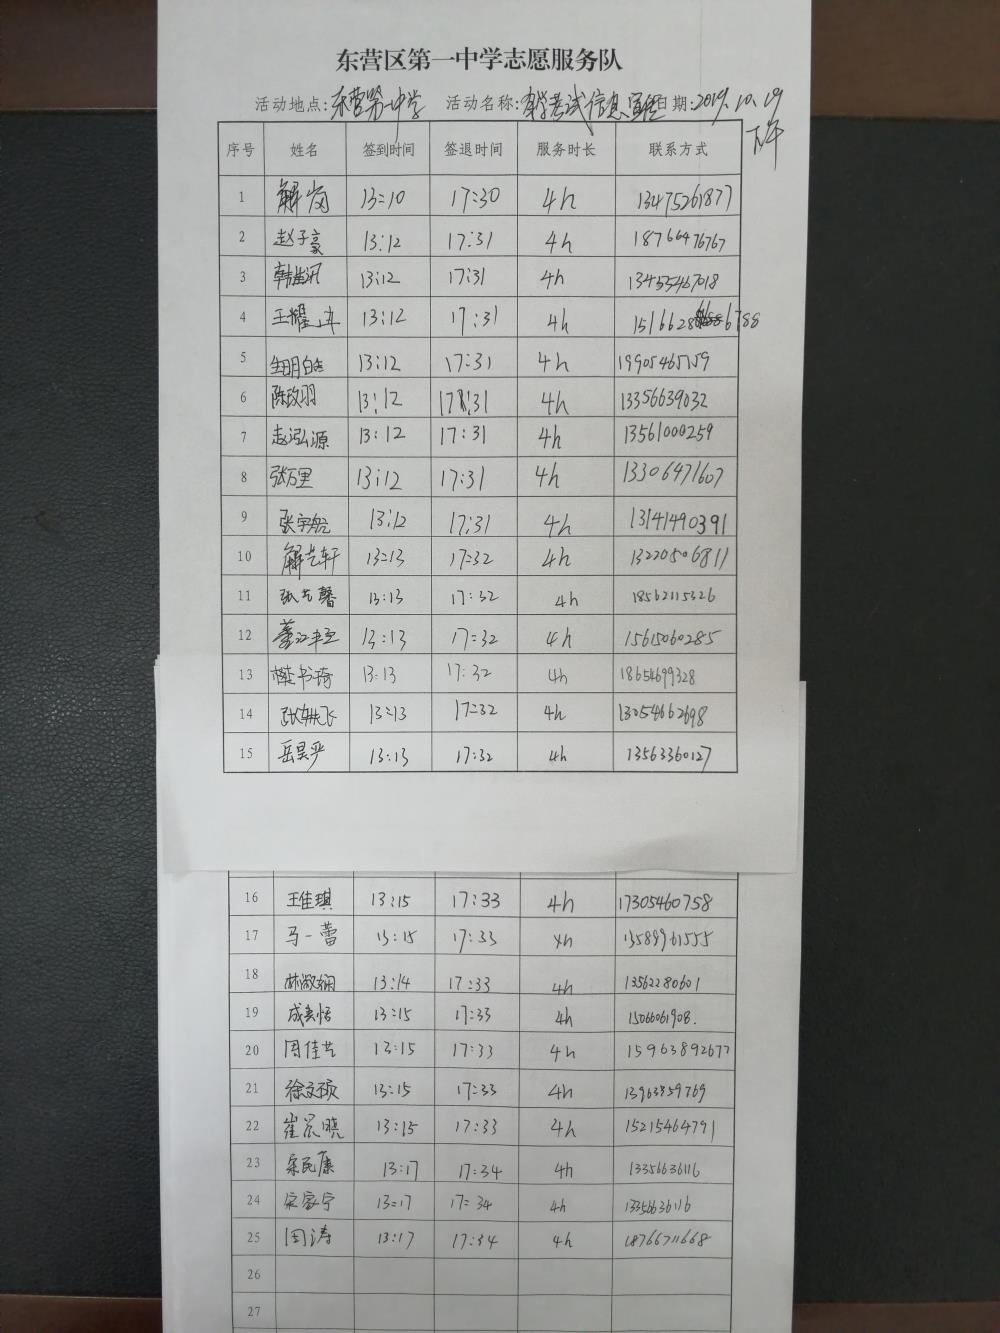 东营区第一中学志愿服务队
活动地点:东营第一中学 活动名称: 考试信息宣 日期:2019.10.19
下午
序号 姓名 签到时间 签退时间 服务时长 联系方式
1 解岗 13:10 17:30 4h 13475261877
2 赵子豪 13:12 17:31 4h 18766476767
3 韩 13:12 17:31 4h 13455467018
4 王耀 13:12 17:31 4h 1516628 6788
5 13:12 17:31 4h 19905465759
6 陈玫羽 13:12 17:31 4h 13356639032
7 赵泓源 13:12 17:31 4h 13561000259
8 张万里 13:12 17:31 4h 13306471607
9 张宇航 13:12 17:31 4h 13141490391
10 解艺轩 13:13 17:32 4h 13220506811
11 张艺馨 13:13 17:32 4h 18562115326
12 13:13 17:32 4h 15615060285
13 书琦 13:13 17:32 4h 18654699328
14 张 飞 13:13 17:32 4h 13054662698
15 岳昊严 13:13 17:32 4h 13563360127
16 王佳琪 13:15 17:33 4h 17305460758
17 马一蕾 13:15 17:33 4h 13589961555
18 林 13:14 17:33 4h 13562280601
19 成 13:15 17:33 4h 15066061908.
20 周佳艺 13:15 17:33 4h 15963892677
21 徐文硕 13:15 17:33 4h 13963459769
22 崔晨晓 13:15 17:33 4h 15215464791
23 民康 13:17 17:34 4h 13356636116
24 宋家宁 13:17 17:34 4h 13356636116
25 周涛 13:17 17:34 4h 18766711668
26
27